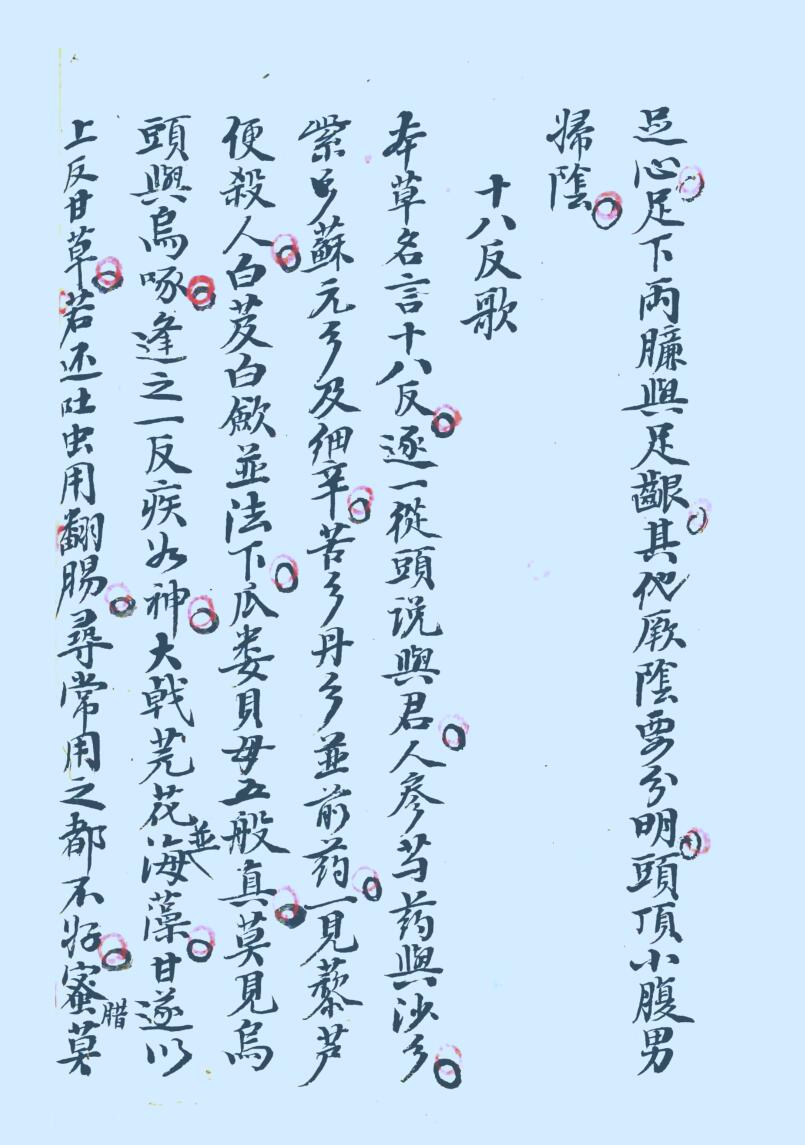 足心足下兩臁與足齦其他厥陰要分明頭頂小腹男
歸陰
十八反歌
本草名言十八反逐一從頭说與君人參芍药與沙彡
紫彡蘇元彡及细辛苦彡丹彡並前药一見藜芦
便殺人白芨白歛並法下瓜娄貝母五般真莫見烏
頭與烏啄逢之一反疾如神大戟芫花並海藻甘遂以
上反甘草若还吐虫用翻腸尋常用之都不好蜜腊莫